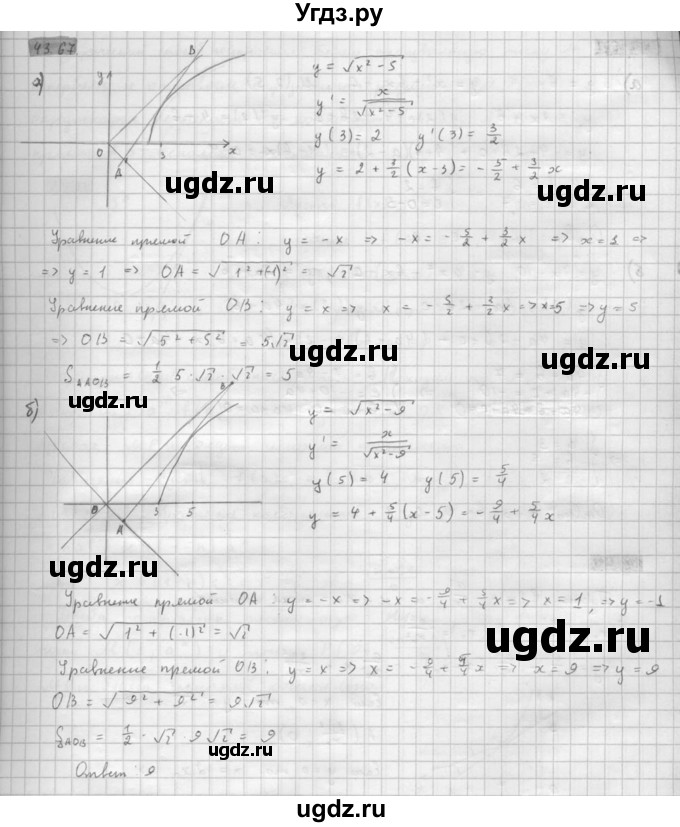 Угдз.ру
43.67
а)
y
B
O
A
3
x
y = √(x² - 5)
y' = x/√(x² - 5)
y(3) = 2 y'(3) = 3/2
y = 2 + 3/2 (x - 3) = - 5/2 + 3/2 x
ugdz.ru
ugdz.ru
Уравнение прямой OA: y = -x => -x = - 5/2 + 3/2 x => x = 1 =>
=> y = 1 => OA = √(1² + (-1)²) = √2
ugdz.ru
ugdz.ru
Уравнение прямой OB: y = x => x = - 5/2 + 3/2 x => x = 5 => y = 5
=> OB = √(5² + 5²) = 5√2
ugdz.ru
S ΔAOB = 1/2 5 · √2 · √2 = 5
ugdz.ru
б)
B
O
A
3
5
y = √(x² - 9)
y' = x/√(x² - 9)
y(5) = 4 y(5) = 5/4
y = 4 + 5/4 (x - 5) = - 9/4 + 5/4 x
ugdz.ru
ugdz.ru
Уравнение прямой OA: y = -x => -x = - 9/4 + 5/4 x => x = 1, => y = -1
OA = √(1² + (-1)²) = √2
ugdz.ru
ugdz.ru
Уравнение прямой OB: y = x => x = - 9/4 + 5/4 x => x = 9 => y = 9
OB = √(9² + 9²) = 9√2
ugdz.ru
S ΔAOB = 1/2 · √2 · 9√2 = 9
ugdz.ru
Ответ: 9
ugdz.ru